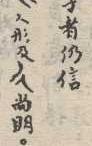 子者仍信
人形及人尚明。